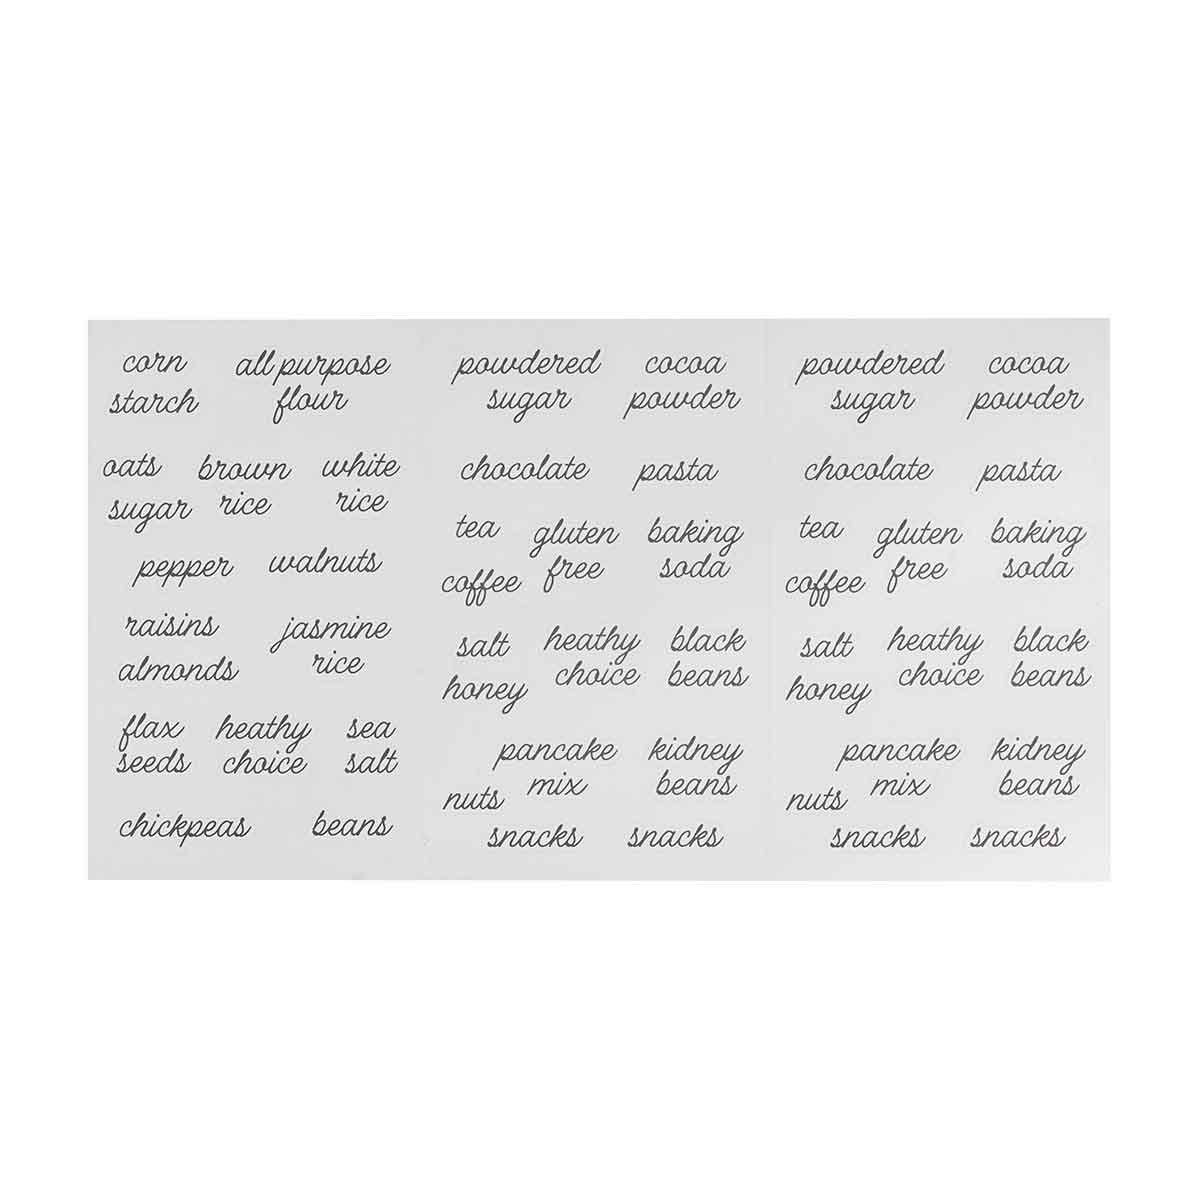 corn all purpose
starch flour
oats brown white
sugar rice rice
pepper walnuts
raisins jasmine
almonds rice
flax heathy sea
seeds choice salt
chickpeas beans
powdered cocoa
sugar powder
chocolate pasta
tea gluten baking
coffee free soda
salt heathy black
honey choice beans
pancake kidney
nuts mix beans
snacks snacks
powdered cocoa
sugar powder
chocolate pasta
tea gluten baking
coffee free soda
salt heathy black
honey choice beans
pancake kidney
nuts mix beans
snacks snacks